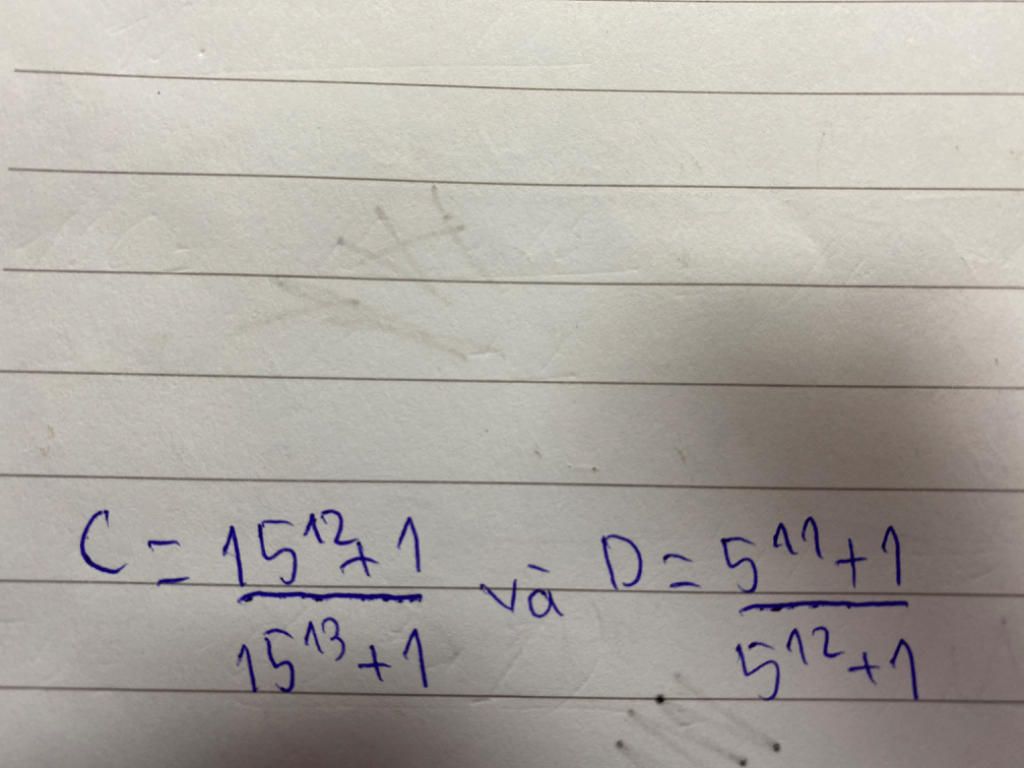 C = \frac{15^{12}+1}{15^{13}+1} và D = \frac{5^{11}+1}{5^{12}+1}